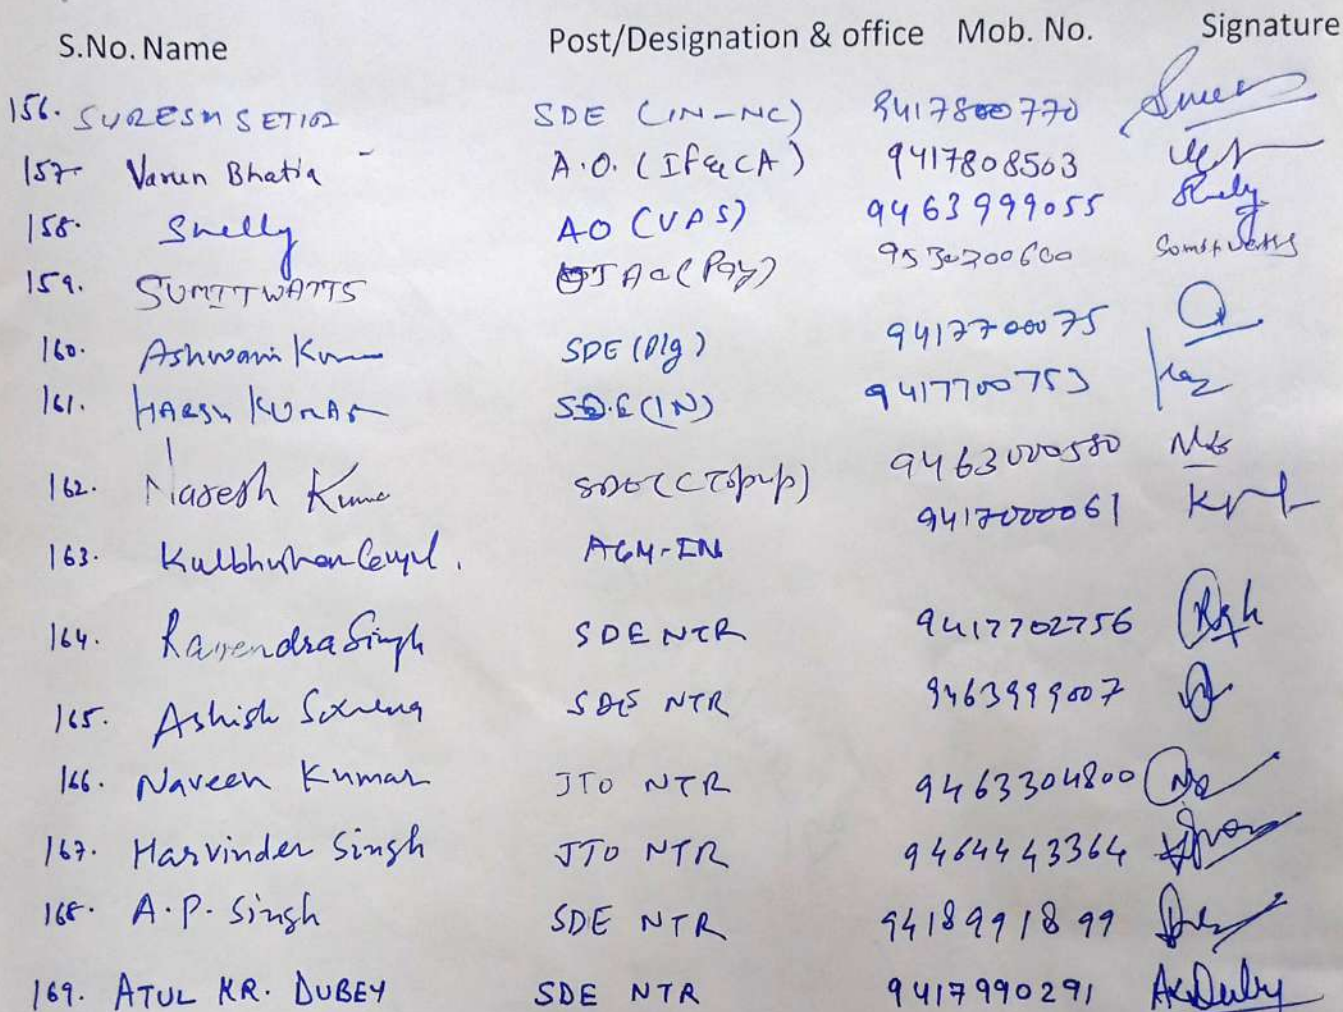 S.No. Name Post/Designation & office Mob. No. Signature
156. SURESH SETIA SDE (IN-NC) 9417800770
157. Varun Bhatia A.O. (IF&CA) 9417808503
158. Shelly AO (VAS) 9463999055 Shelly
159. SUMIT WATTS JAO (Pay) 9530200600
160. Ashwani Kumar SDE (Plg) 9417700075
161. HARSH KUMAR SDE (IN) 9417700753
162. Naresh Kumar SDE (CTopup) 9463000580
163. Kulbhushan AGM-IN 9417000061
164. Ravendra Singh SDE NTR 9417702756
165. Ashish Saxena SDE NTR 9463999007
166. Naveen Kumar JTO NTR 9463304800
167. Harvinder Singh JTO NTR 9464443364
168. A.P. Singh SDE NTR 9418991899
169. ATUL KR. DUBEY SDE NTR 9417990291 AKDubey